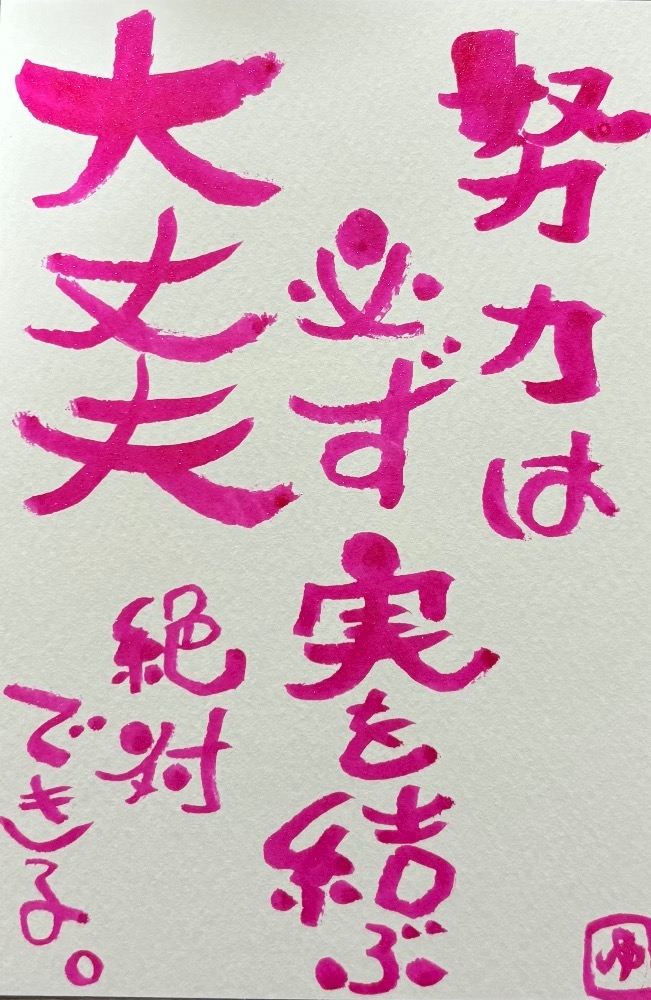 努力は
必ず実を結ぶ
大丈夫
絶対
できる。
ゆ